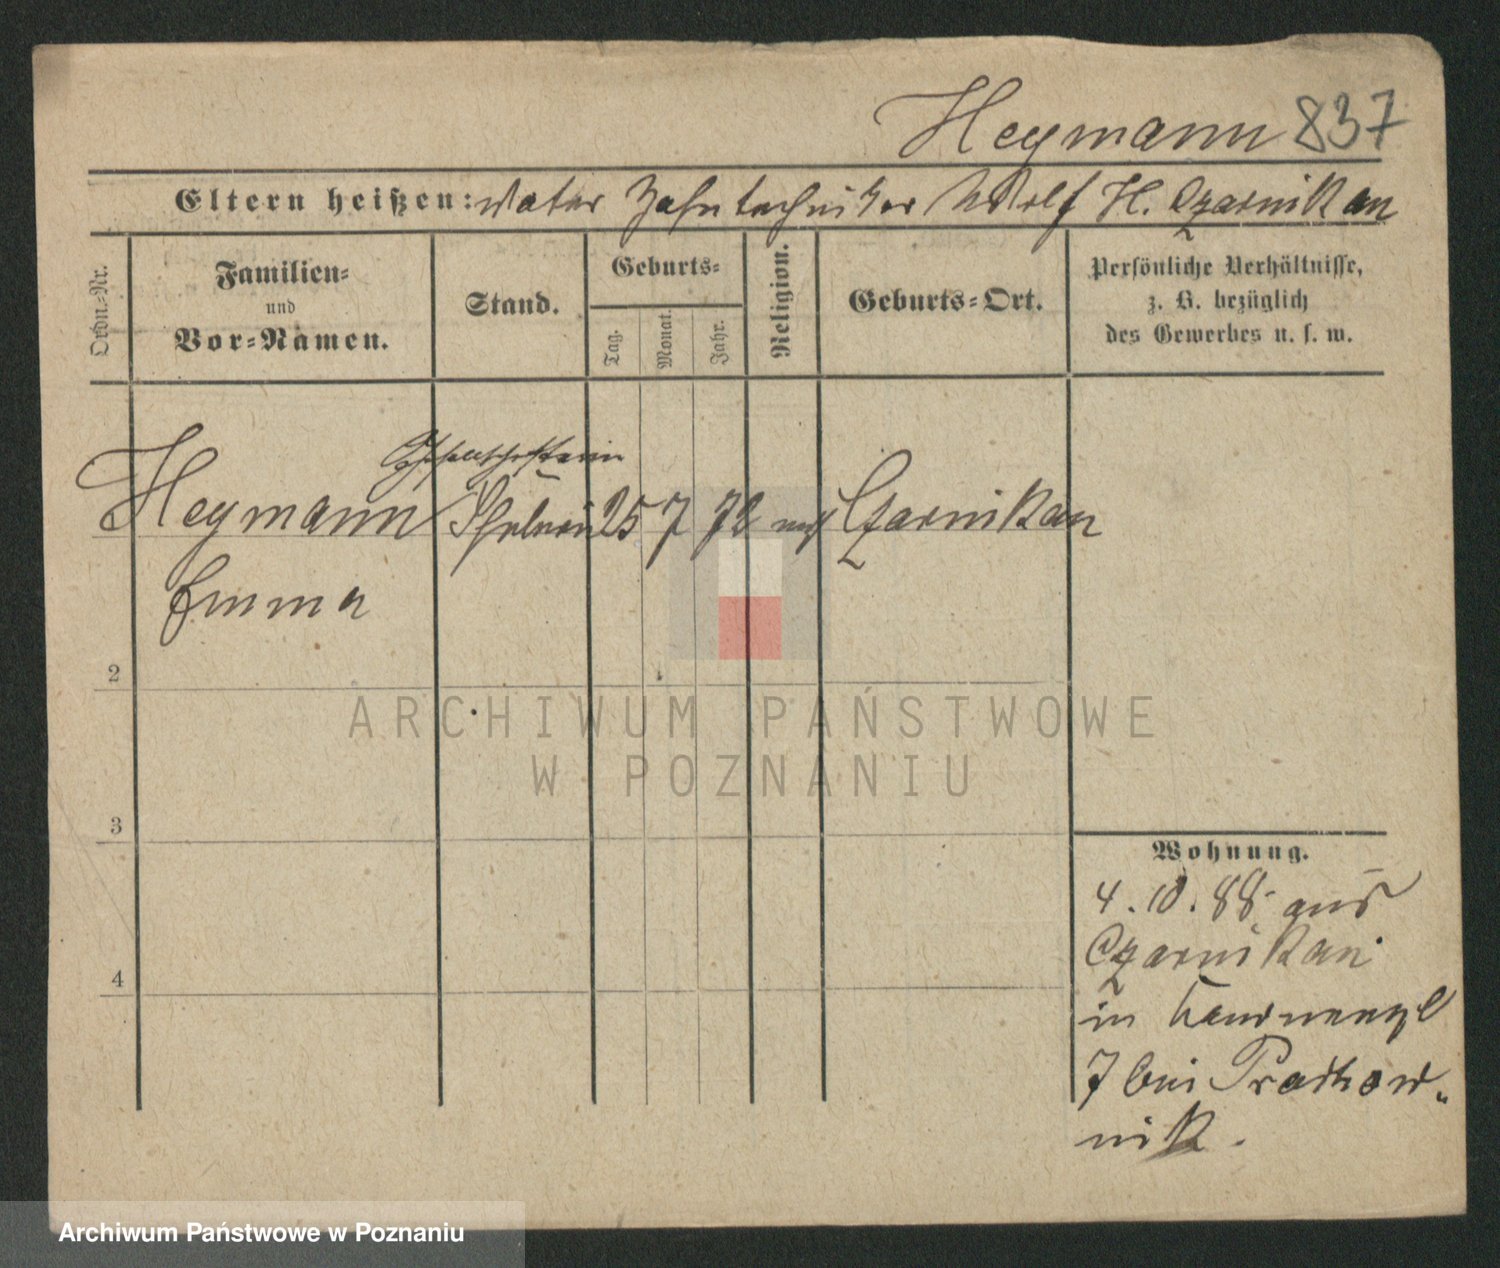 Heymann 837
Eltern heißen: Vater Zahntechniker Adolf H. Czarnikau
Ordn.-Nr.
Familien-
und
Vor-Namen.
Stand.
Geburts-
Tag.
Monat.
Jahr.
Religion.
Geburts-Ort.
Persönliche Verhältnisse,
z. B. bezüglich
des Gewerbes u. s. w.
Heymann Schülerin 25 7 72 mos Czarnikau
Emma
2
3
4
Wohnung.
4.10.88 aus
Czarnikau
in
7 bei Pradkow-
nik.
ARCHIWUM PAŃSTWOWE
W POZNANIU
Archiwum Państwowe w Poznaniu